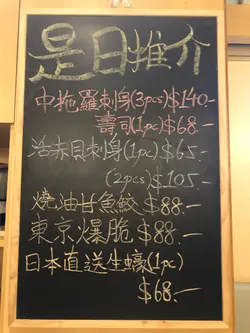 是日推介
中拖羅刺身(3pcs)$140.-
壽司(1pc)$68.-
活赤貝刺身(1pc)$65.-
(2pcs)$105.-
燒油甘魚鮫$88.-
東京爆脆$88.-
日本直送生蠔(1pc)
$68.-